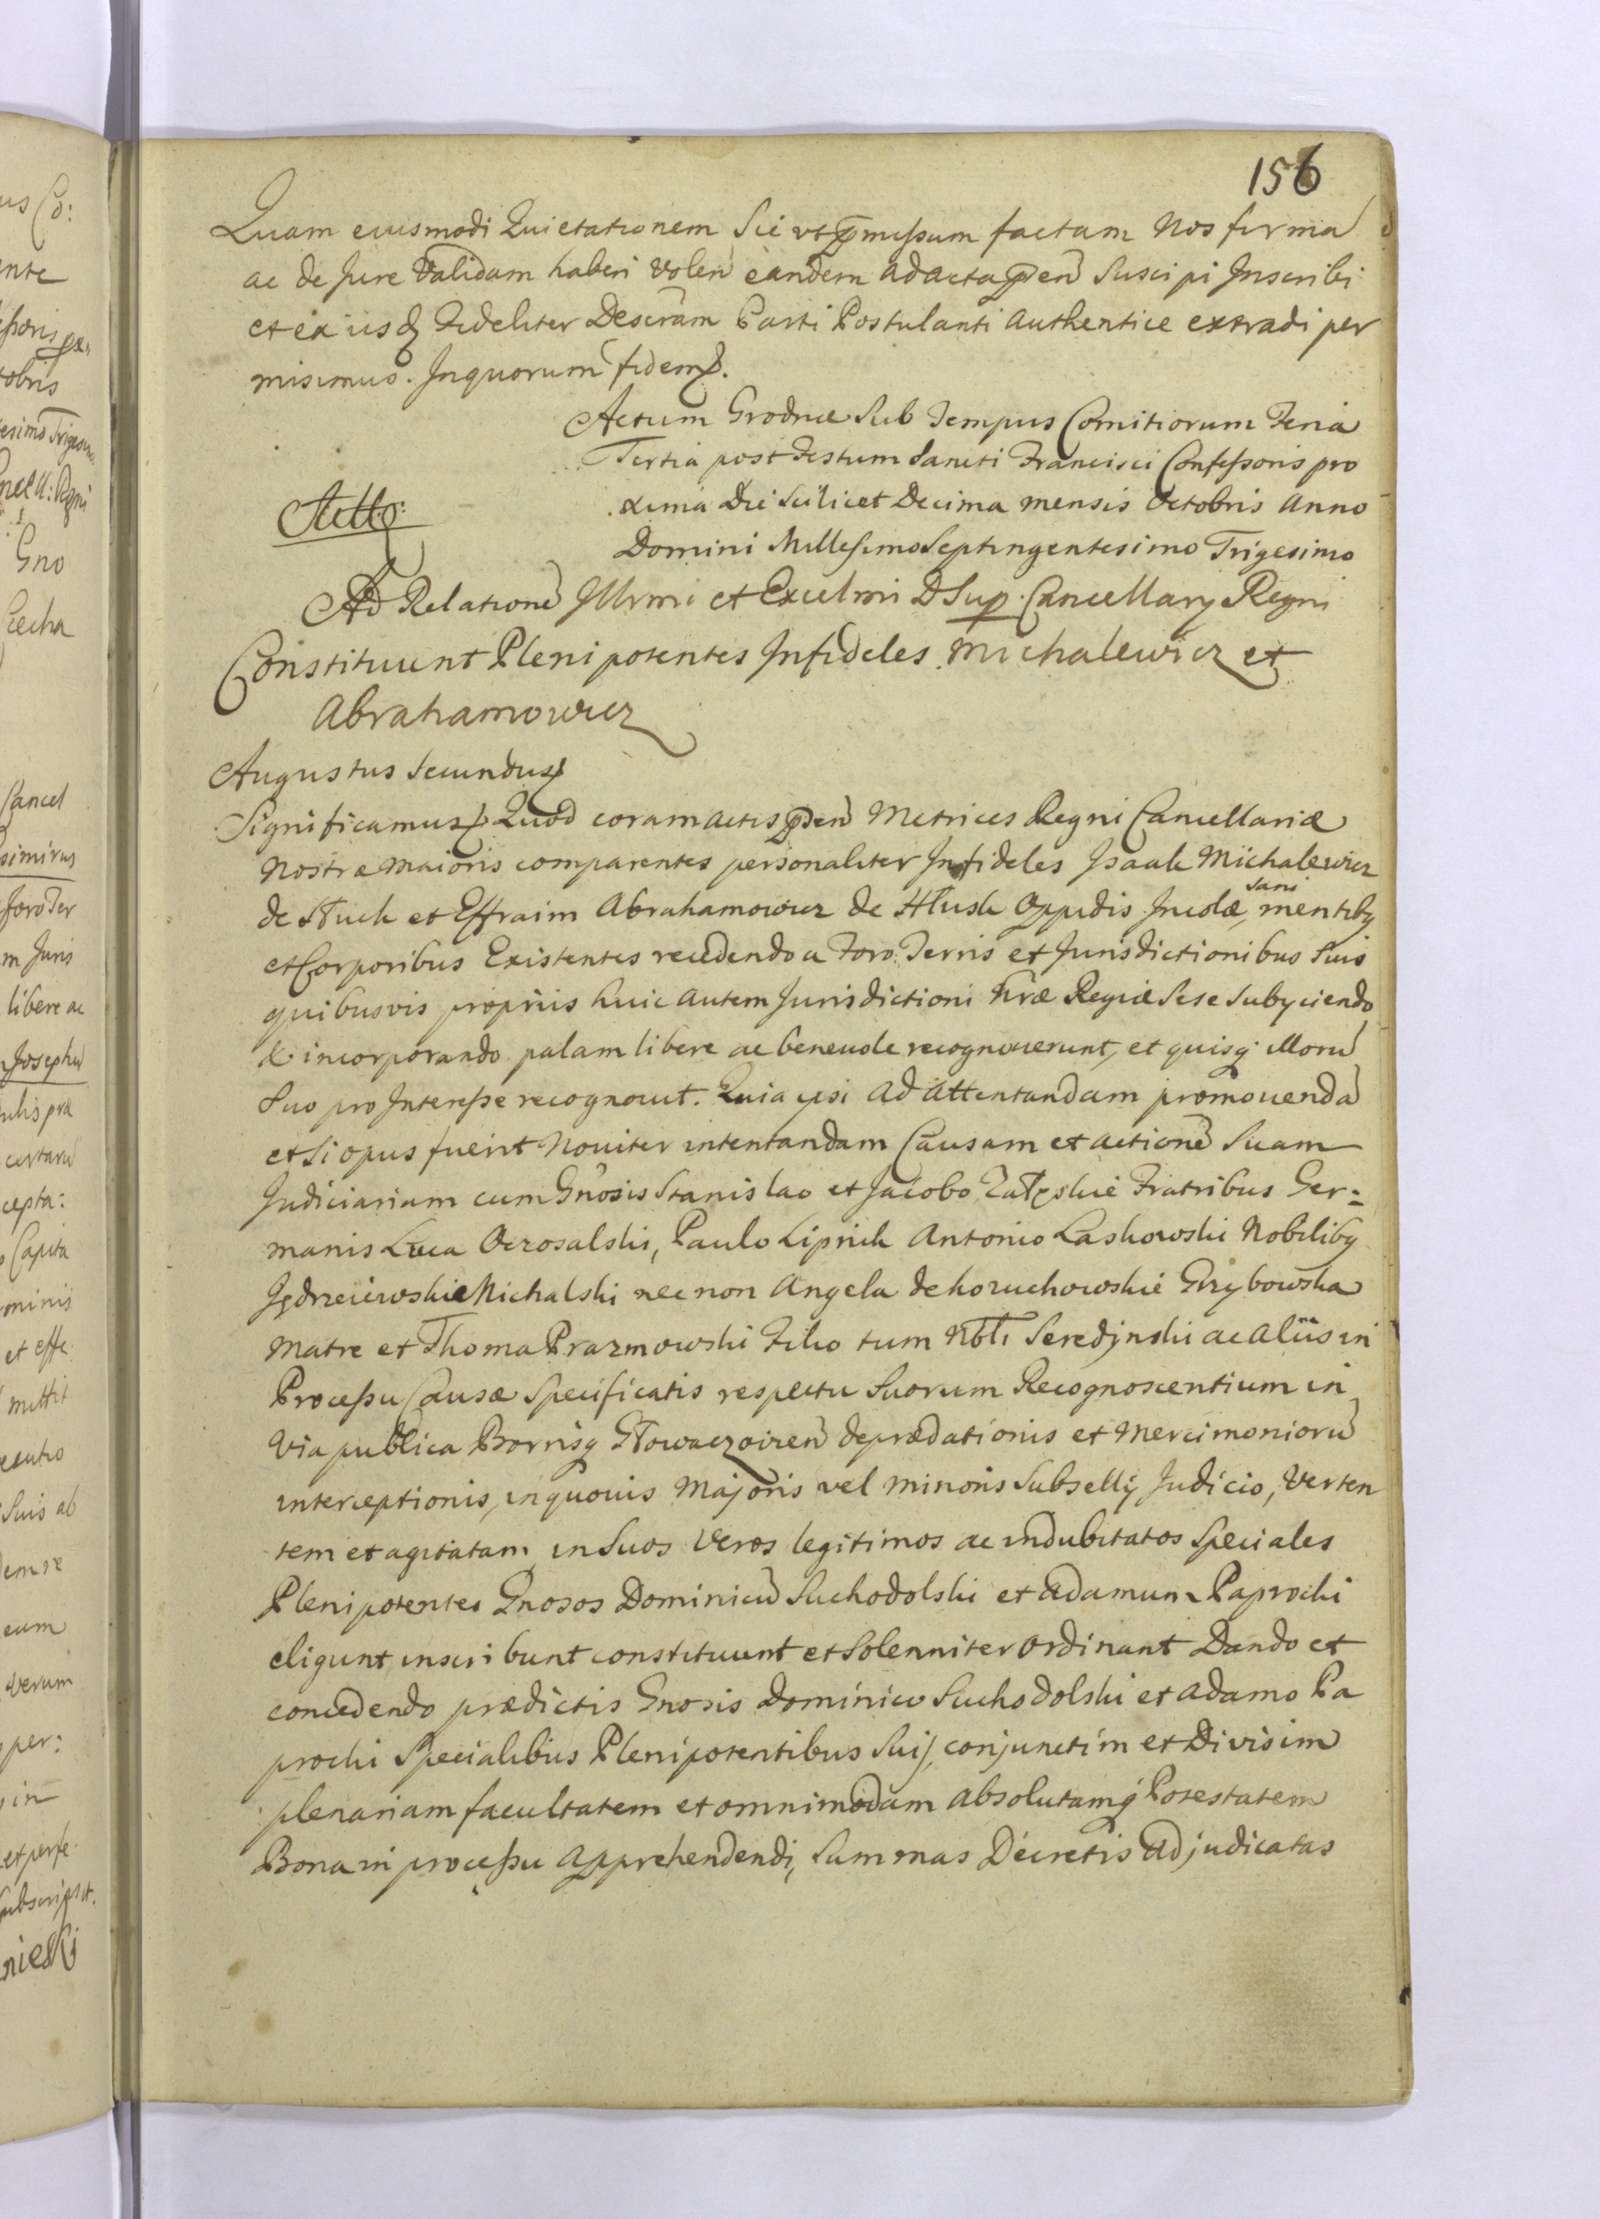 156
Quam eiusmodi Quietationem Sic ut pmissum factam Nos firmā
ac de Jure Validam haberi Volen eandem ad acta pñ Suscipi Inscribi
et ex iisq Fideliter Descram Parti Postulanti Authentice extradi per
misimus. In quorum fidem
Actum Grodnæ Sub Tempus Comitiorum Feria
Tertia post Festum Sancti Francisci Confessoris pro
xima Die Scilicet Decima mensis Octobris Anno
Domini Millesimo Septingentesimo Trigesimo
Ad Relationē Illrmi et Excelmi D Sup. Cancellarij Regni
Constituunt Plenipotentes Infideles Michalewicz et
Abrahamowicz
Augustus Secundus
Significamus Quod coram actis pñ Metrices Regni Cancellariæ
Nostræ Maioris comparentes personaliter Infideles Isaak Michalewicz
de Sluck et Effraim Abrahamowicz de Hlusk Oppidis Incolæ, sani mentibq
et Corporibus Existentes recedendo a Foro Terris et Jurisdictionibus Suis
quibusvis proprijs huic autem Jurisdictioni Nræ Regiæ Sese Subyciendo
& incorporando palam libere ac beneuole recognouerunt, et quisq illorū
Suo pro Interesse recognouit. Quia ipsi ad Attentandam promouendā
et si opus fuerit Noviter intentandam Causam et actionē Suam
Judiciariam cum Gnosis Stanislao et Jacobo Załęskie Fratribus Ger=
manis Luca Oczosalski, Paulo Lipnik Antonio Laskowski Nobilibq
Jędrzeiewskie Michalski nec non Angela de Koruchowskie Grzybowska
Matre et Thoma Prazmowski Filio tum Nbli Seredynski ac Aliis in
Processu Causæ Specificatis respectu Suorum Recognoscentium in
Via publica Borrisq Głowaczoiren deprædationis et Mercimoniorū
interceptionis, in quouis Majoris vel Minoris Subsellij Judicio, Verten
tem et agitatam in Suos Veros legitimos ac indubitatos Speciales
Plenipotentes Gnosos Dominicū Suchodolski et Adamum Paprocki
eligunt inscribunt constituunt et Solenniter Ordinant Dando et
concedendo prædictis Gnosis Dominico Suchodolski et Adamo Pa
procki Specialibus Plenipotentibus Suis, conjunctim et Divisim
plenariam facultatem et omnimodam absolutamq Potestatem
Bona in processu Apprehendendi, Summas Decretis adjudicatas